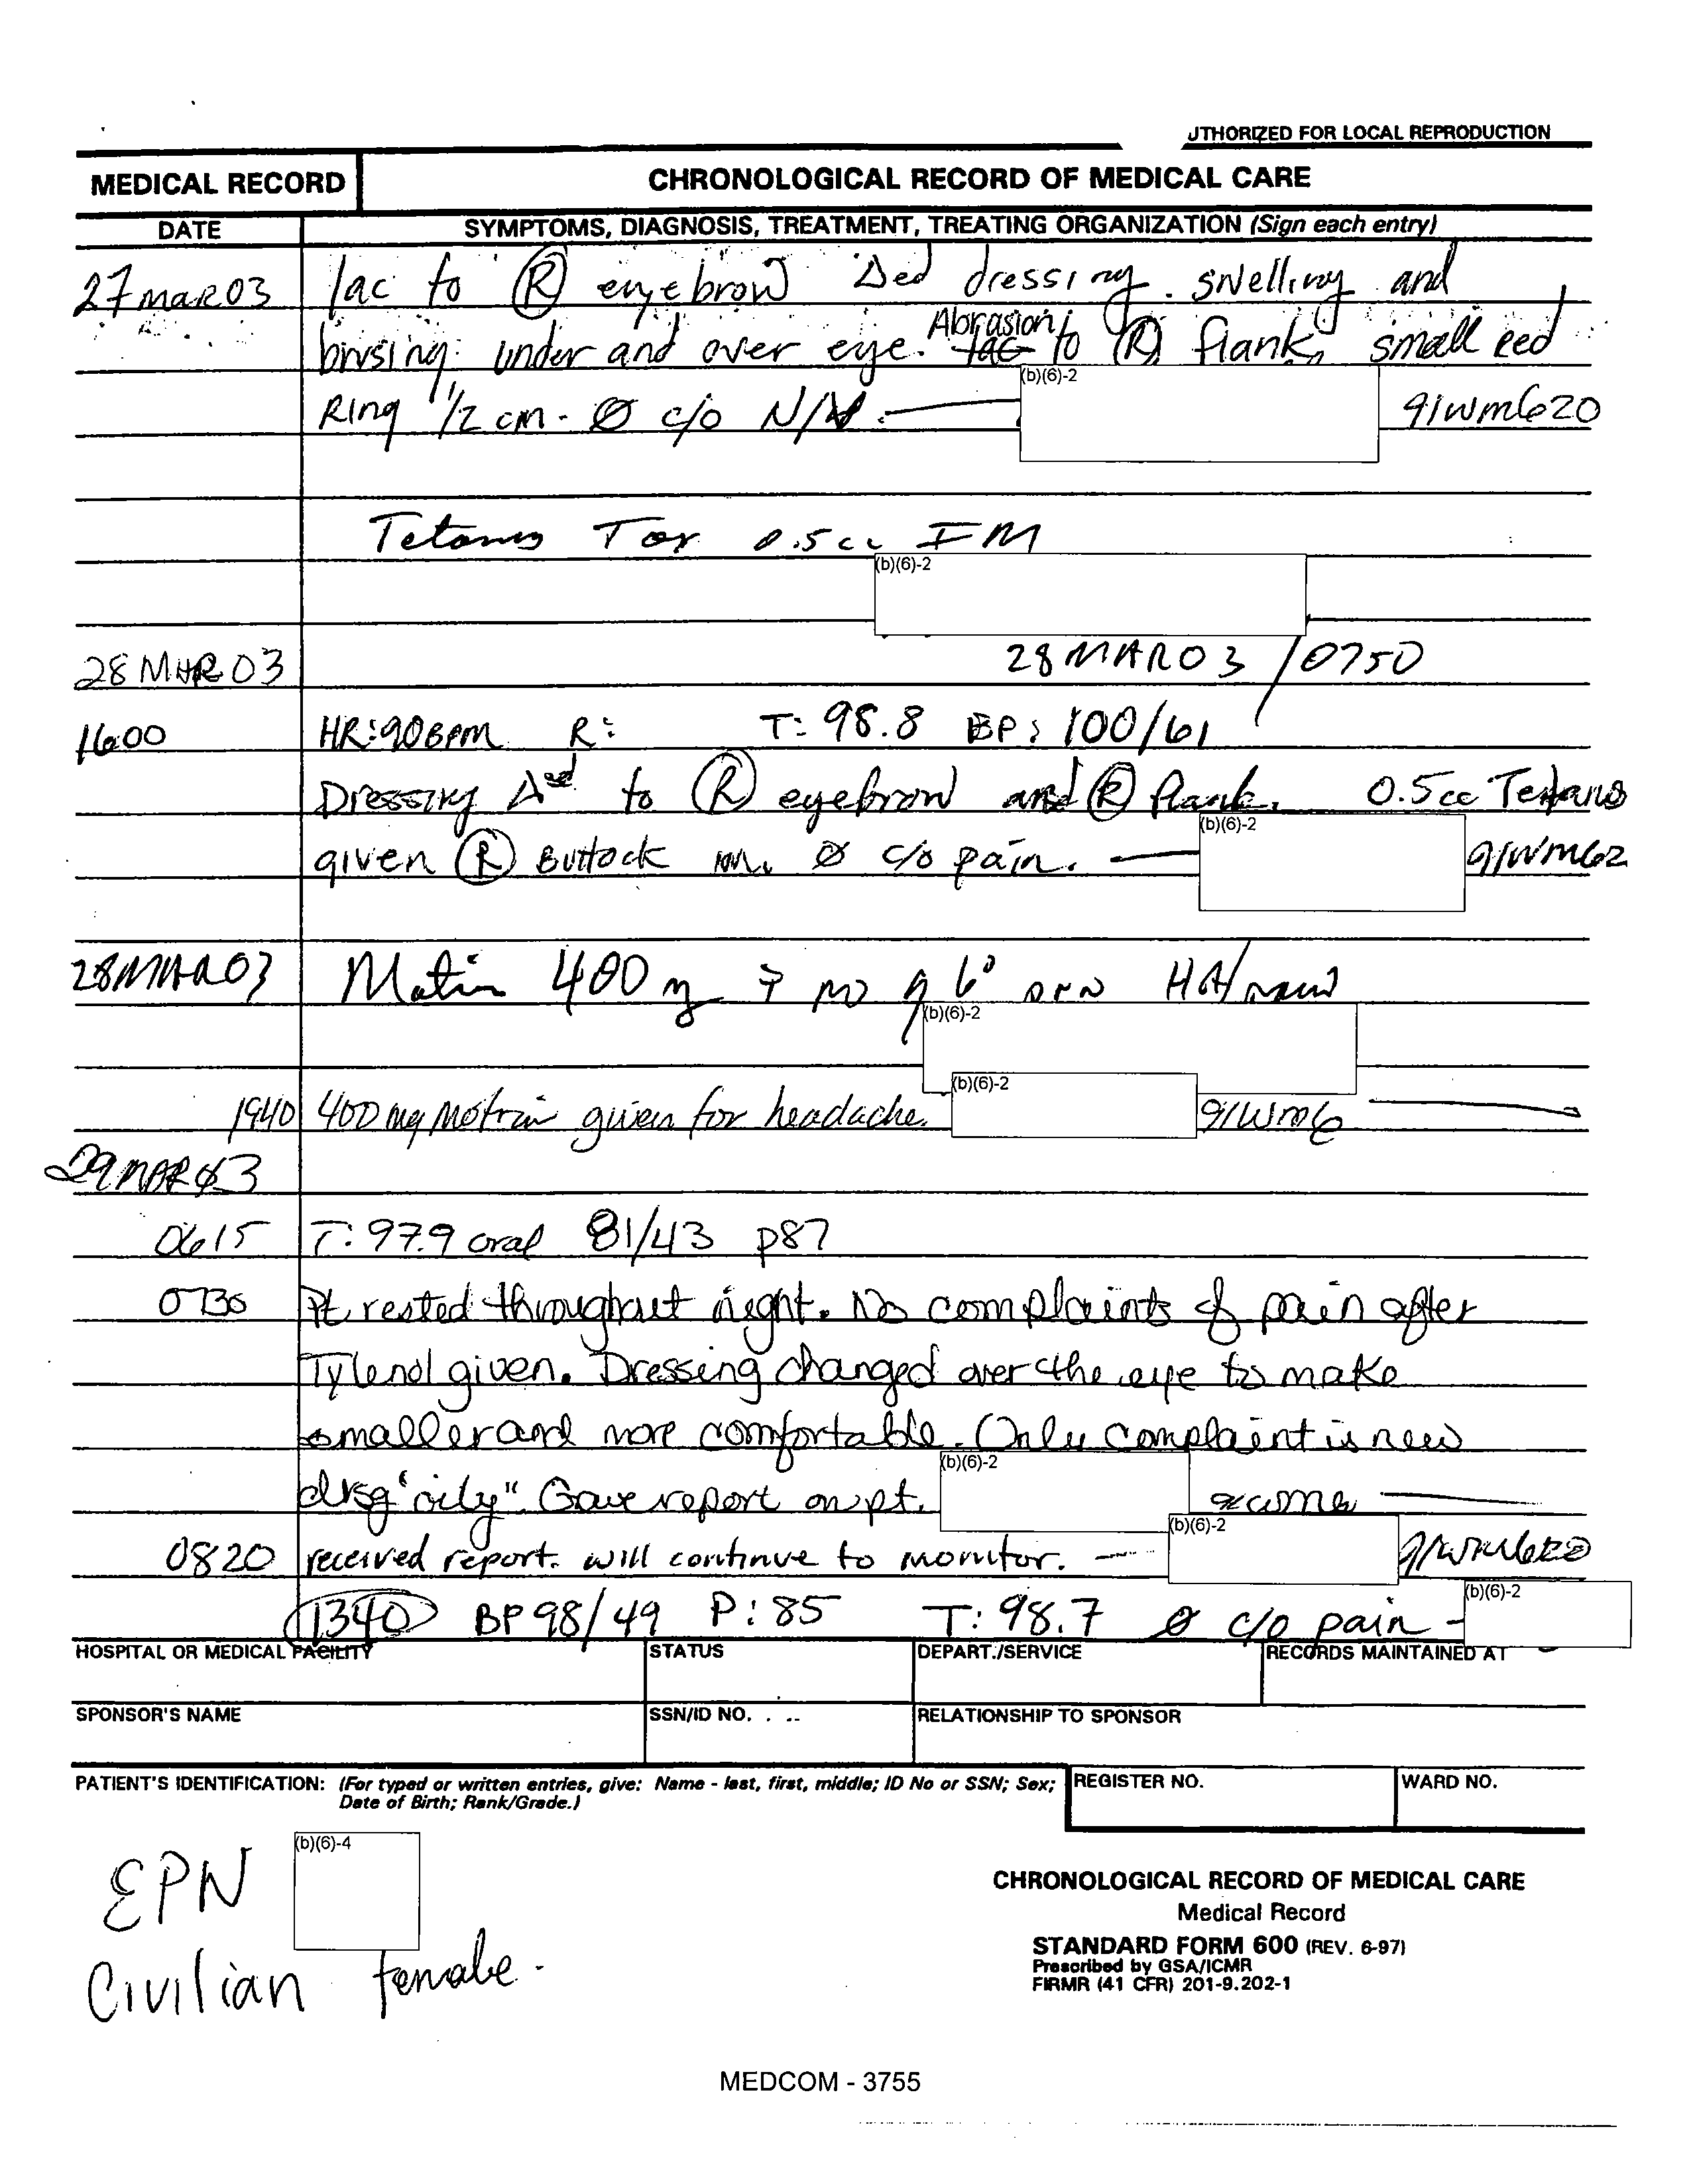 UTHORIZED FOR LOCAL REPRODUCTION
MEDICAL RECORD CHRONOLOGICAL RECORD OF MEDICAL CARE
DATE SYMPTOMS, DIAGNOSIS, TREATMENT, TREATING ORGANIZATION (Sign each entry)
27 MAR 03 lac to Ⓡ eyebrow Δed dressing. swelling and
brusing under and over eye. Abrasion to Ⓡ flank, small red
(b)(6)-2
Ring 1/2 cm - Ø c/o N/V. 91WM620
Tetanus Tox 0.5cc IM
(b)(6)-2
28 MAR 03 28 MAR 03 / 0750
1600 HR: 90 BPM R: T: 98.8 BP: 100/61
Dressing Δed to Ⓡ eyebrow and Ⓡ flank. 0.5cc Tetanus
(b)(6)-2
given Ⓡ Buttock IM. Ø c/o pain. 91WM62
28 MAR 03 Motrin 400 mg † PO q 6° PRN HA/pain
(b)(6)-2
(b)(6)-2
1940 400 mg Motrin given for headache. 91WM6
29 MAR 03
0615 T: 97.9 oral 81/43 p87
0730 Pt rested throughout night. No complaints of pain after
Tylenol given. Dressing changed over the eye to make
smaller and more comfortable. Only complaint is new
(b)(6)-2
drsg "oily". Gave report on pt. 91WM6
(b)(6)-2
0820 received report. will continue to monitor. 91WM620
(b)(6)-2
1340 BP 98/49 P: 85 T: 98.7 Ø c/o pain -
HOSPITAL OR MEDICAL FACILITY STATUS DEPART./SERVICE RECORDS MAINTAINED AT
SPONSOR'S NAME SSN/ID NO. RELATIONSHIP TO SPONSOR
PATIENT'S IDENTIFICATION: (For typed or written entries, give: Name - last, first, middle; ID No or SSN; Sex; REGISTER NO. WARD NO.
Date of Birth; Rank/Grade.)
(b)(6)-4
EPW
Civilian female.
CHRONOLOGICAL RECORD OF MEDICAL CARE
Medical Record
STANDARD FORM 600 (REV. 6-97)
Prescribed by GSA/ICMR
FIRMR (41 CFR) 201-9.202-1
MEDCOM - 3755